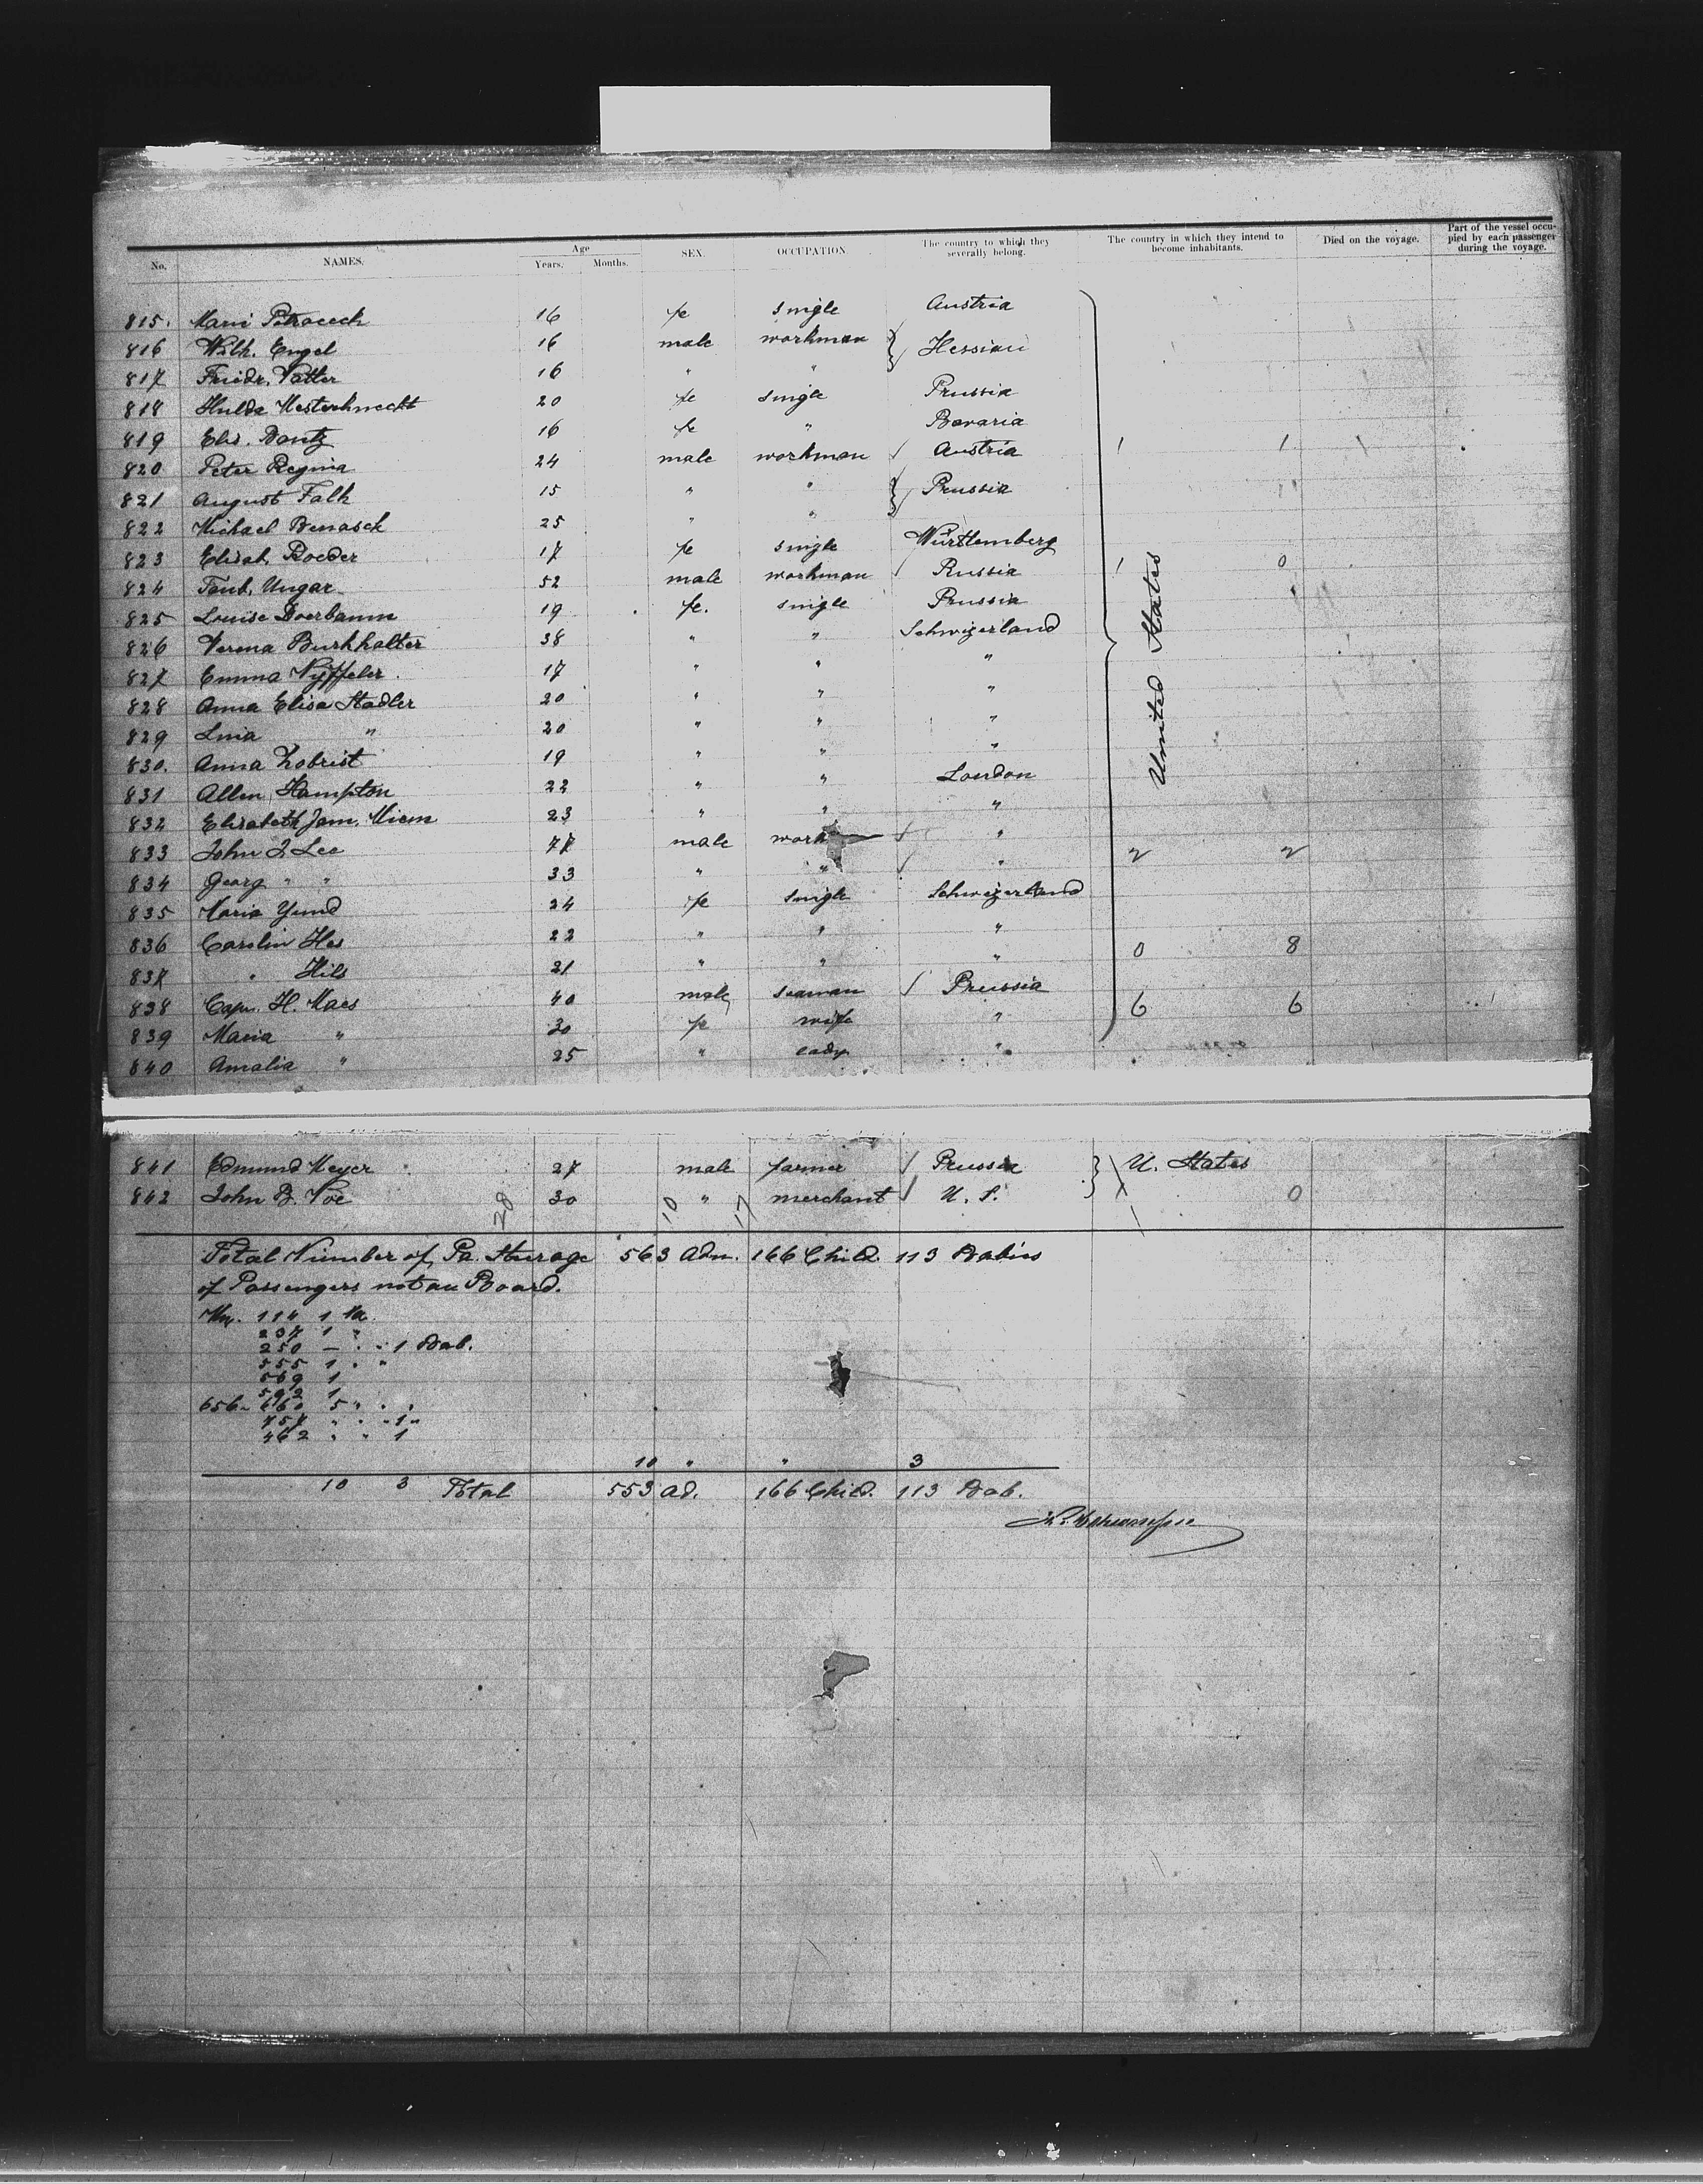 No. NAMES. Age Years. Months. SEX. OCCUPATION. The country to which they severally belong. The country in which they intend to become inhabitants. Died on the voyage. Part of the vessel occupied by each passenger during the voyage.
815. Mari 16 fe single Austria
816 Wilh. Engel 16 male workman } Hessian
817 Friedr. Vatter 16 " "
818 Hulda 20 fe single Prussia
819 Elis. Bentz 16 fe " Bavaria
820 Peter Regina 24 male workman / Austria 1 1
821 August Falk 15 " " } Prussia
822 Michael Benasch 25 " "
823 Elisab. Roeder 17 fe single Württemberg
824 Ungar 52 male workman / Russia 1 0
825 Louise Doerbaum 19 fe. single Prussia
826 Verena Burkhalter 38 " " Schwizerland
827 Emma Nyffeler 17 " " "
828 Anna Elisa Stadler 20 " " "
829 Lina " 20 " " "
830. Anna Zobrist 19 " " "
831 Allen Hampton 22 " " London
832 Elisabeth Jam. 23 " " "
833 John J. Lee 47 male work / " 2 2
834 Georg " " 33 " " / "
835 Maria Yund 24 fe single Schwizerland
836 Carolin Hes 22 " " " 0 8
837 " Hils 21 " " "
838 Capn. H. Maes 40 male seaman / Prussia 6 6
839 Maria " 30 fe wife "
840 Amalia " 25 " lady "
United States
841 Edmund Meyer 27 male farmer / Prussia } U. States
842 John B. 30 " merchant / U. S. 0
20 10 17
Total Number of Pa. Sterage 563 Adn. 166 Child. 113 Babies
of Passengers not an Board.
114 1
237 1 "
250 — " " 1 Bab.
555 1 " "
569 1
592 1
656- 660 5 " " "
757 " " " 1 "
462 " " 1
10 " " 3
10 3 Total 553 Ad. 166 Child. 113 Bab.